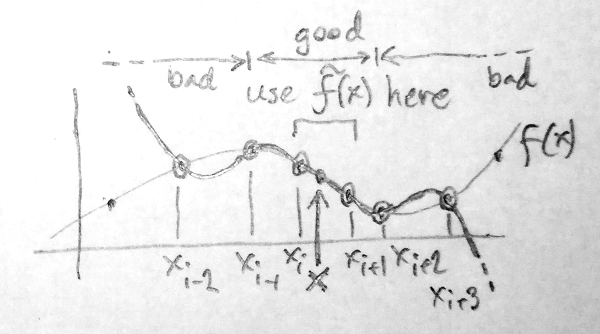 good
bad bad
use f̃(x) here
f(x)
x_{i-2} x_{i-1} x_i x x_{i+1} x_{i+2} x_{i+3}